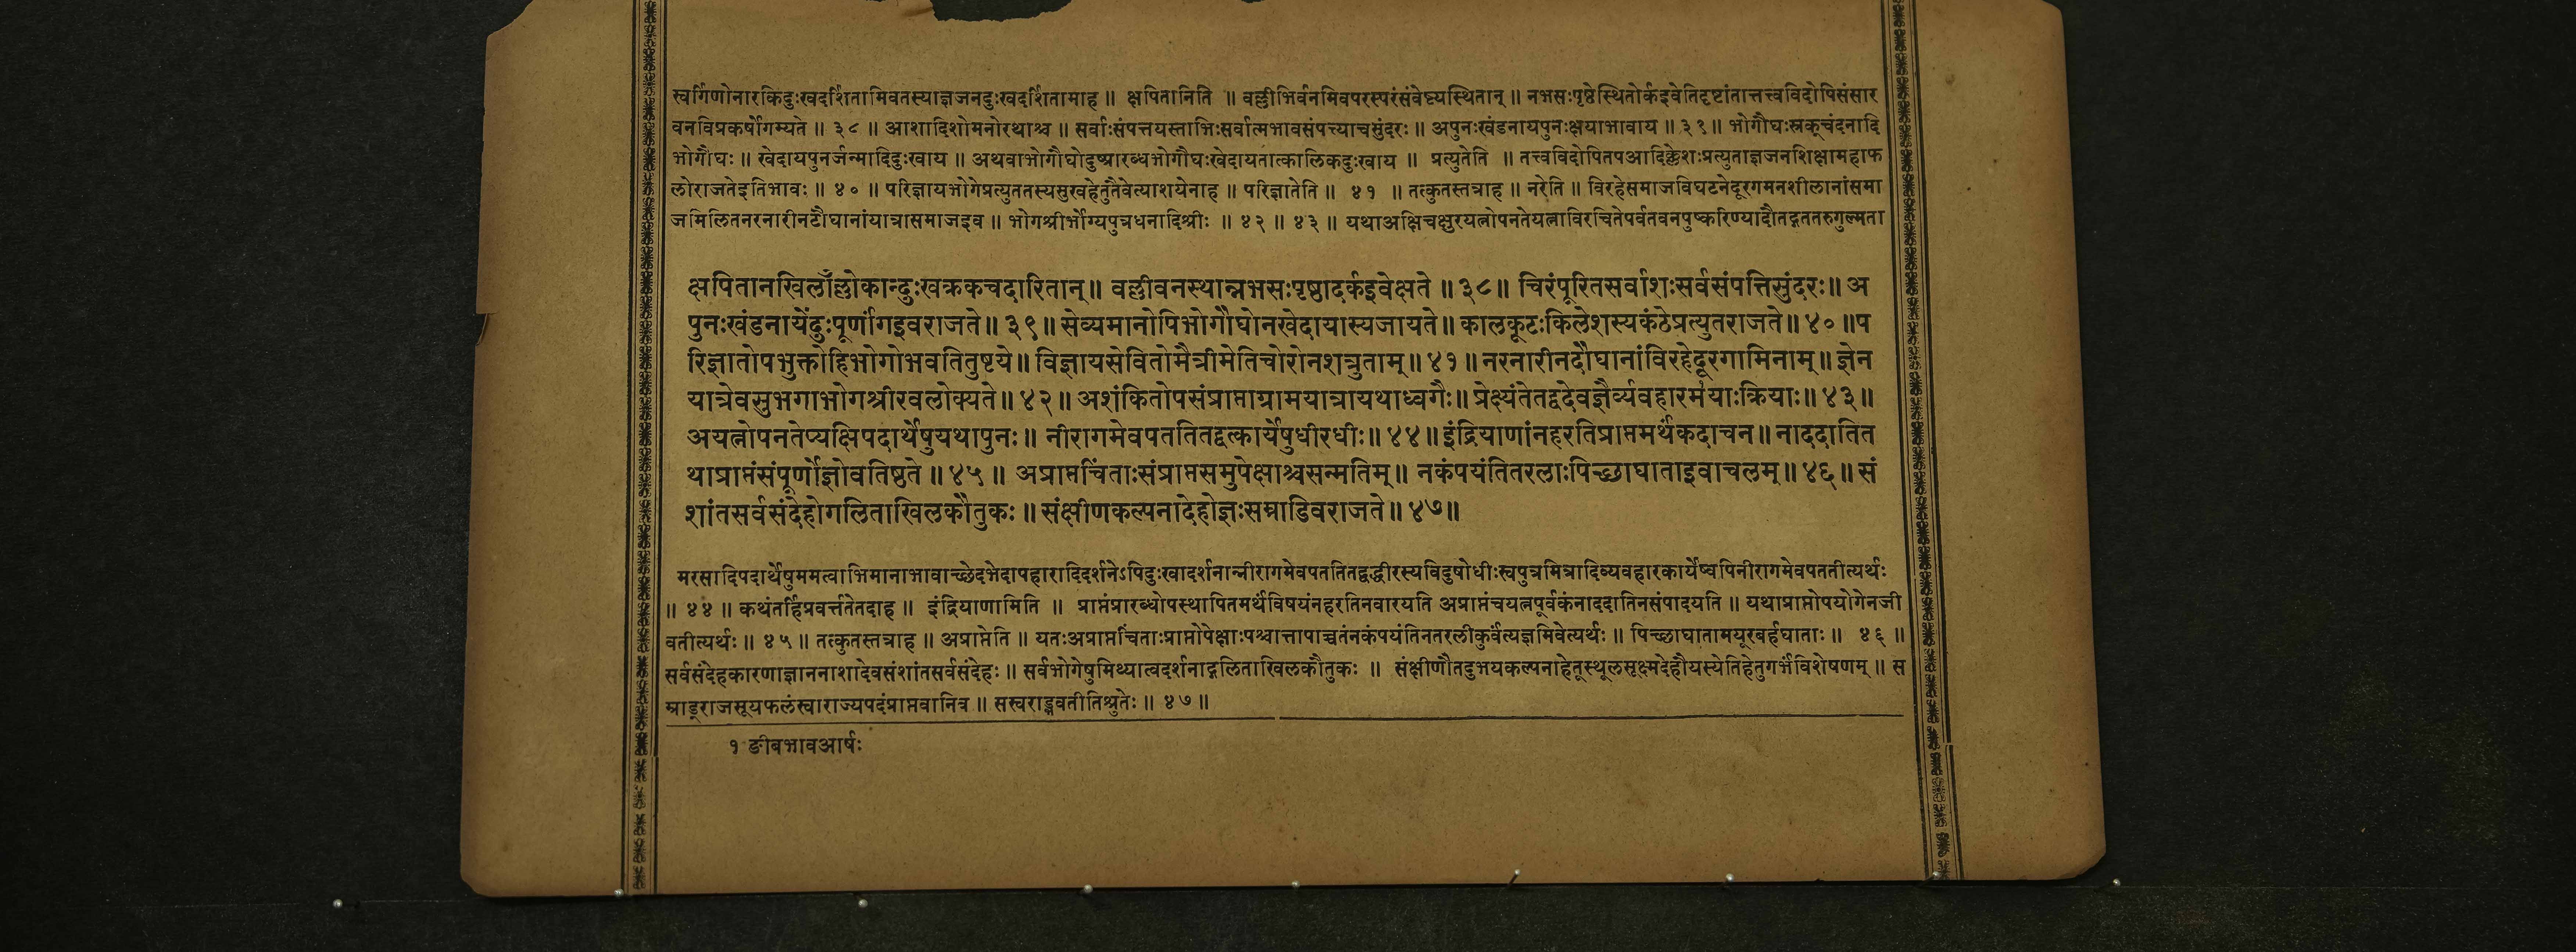 स्वर्गिणोनारकिदुःखदर्शितामिवतस्याज्ञजनदुःखदर्शितामाह ॥ क्षपितानिति ॥ वल्लीभिर्वनमिवपरस्परंसंवेष्ट्यस्थितान् ॥ नभसःपृष्ठेस्थितोर्कइवेतिदृष्टांतात्तत्त्वविदोपिसंसार
वनविप्रकर्षोगम्यते ॥ ३८ ॥ आशादिशोमनोरथाश्च ॥ सर्वाःसंपत्तयस्ताभिःसर्वात्मभावसंपत्त्याचसुंदरः ॥ अपुनःखंडनायपुनःक्षयाभावाय ॥ ३९ ॥ भोगौघःस्रक्चंदनादि
भोगौघः ॥ खेदायपुनर्जन्मादिदुःखाय ॥ अथवाभोगौघोदुष्प्रारब्धभोगौघःखेदायतात्कालिकदुःखाय ॥ प्रत्युतेति ॥ तत्त्वविदोपितपआदिक्लेशःप्रत्युताज्ञजनशिक्षामहाफ
लोराजतेइतिभावः ॥ ४० ॥ परिज्ञायभोगेप्रत्युततस्यसुखहेतुतैवेत्याशयेनाह ॥ परिज्ञातेति ॥ ४१ ॥ तत्कुतस्तत्राह ॥ नरेति ॥ विरहेसमाजविघटनेदूरगमनशीलानांसमा
जमिलितनरनारीनटौघानांयात्रासमाजइव ॥ भोगश्रीर्भोग्यपुत्रधनादिश्रीः ॥ ४२ ॥ ४३ ॥ यथाअक्षिचक्षुरयत्नोपनतेयत्नाविरचितेपर्वतवनपुष्करिण्यादौतद्गततरुगुल्मता
क्षपितानखिलाँल्लोकान्दुःखक्रकचदारितान् ॥ वल्लीवनस्थान्नभसःपृष्ठादर्कइवेक्षते ॥ ३८ ॥ चिरंपूरितसर्वाशःसर्वसंपत्तिसुंदरः ॥ अ
पुनःखंडनायेंदुःपूर्णांगइवराजते ॥ ३९ ॥ सेव्यमानोपिभोगौघोनखेदायास्यजायते ॥ कालकूटःकिलेशस्यकंठेप्रत्युतराजते ॥ ४० ॥ प
रिज्ञातोपभुक्तोहिभोगोभवतितुष्टये ॥ विज्ञायसेवितोमैत्रीमेतिचोरोनशत्रुताम् ॥ ४१ ॥ नरनारीनटौघानांविरहेदूरगामिनाम् ॥ ज्ञेन
यात्रेवसुभगाभोगश्रीरवलोक्यते ॥ ४२ ॥ अशंकितोपसंप्राप्ताग्रामयात्रायथाध्वगैः ॥ प्रेक्ष्यंतेतद्वदेवज्ञैर्व्यवहारमयाःक्रियाः ॥ ४३ ॥
अयत्नोपनतेप्यक्षिपदार्थेषुयथापुनः ॥ नीरागमेवपततितद्वत्कार्येषुधीरधीः ॥ ४४ ॥ इंद्रियाणांनहरतिप्राप्तमर्थंकदाचन ॥ नाददातित
थाप्राप्तंसंपूर्णोज्ञोवतिष्ठते ॥ ४५ ॥ अप्राप्तचिंताःसंप्राप्तसमुपेक्षाश्चसन्मतिम् ॥ नकंपयंतितरलाःपिच्छाघाताइवाचलम् ॥ ४६ ॥ सं
शांतसर्वसंदेहोगलिताखिलकौतुकः ॥ संक्षीणकल्पनादेहोज्ञःसम्राडिवराजते ॥ ४७ ॥
मरसादिपदार्थेषुममत्वाभिमानाभावाच्छेदभेदापहारादिदर्शनेऽपिदुःखादर्शनान्नीरागमेवपततितद्वद्धीरस्यविदुषोधीःस्वपुत्रमित्रादिव्यवहारकार्येष्वपिनीरागमेवपततीत्यर्थः
॥ ४४ ॥ कथंतर्हिप्रवर्त्ततेतदाह ॥ इंद्रियाणामिति ॥ प्राप्तंप्रारब्धोपस्थापितमर्थंविषयंनहरतिनवारयति अप्राप्तंचयत्नपूर्वकंनाददातिनसंपादयति ॥ यथाप्राप्तोपयोगेनजी
वतीत्यर्थः ॥ ४५ ॥ तत्कुतस्तत्राह ॥ अप्राप्तेति ॥ यतःअप्राप्तचिंताःप्राप्तोपेक्षाःपश्चात्तापाच्चतंनकंपयंतिनतरलीकुर्वंत्यज्ञमिवेत्यर्थः ॥ पिच्छाघातामयूरबर्हघाताः ॥ ४६ ॥
सर्वसंदेहकारणाज्ञाननाशादेवसंशांतसर्वसंदेहः ॥ सर्वभोगेषुमिथ्यात्वदर्शनाद्गलिताखिलकौतुकः ॥ संक्षीणौतदुभयकल्पनाहेतूस्थूलसूक्ष्मदेहौयस्येतिहेतुगर्भंविशेषणम् ॥ स
म्राड्राजसूयफलंस्वाराज्यपदंप्राप्तवानिव ॥ सस्वराड्भवतीतिश्रुतेः ॥ ४७ ॥
१ ङीबभावआर्षः